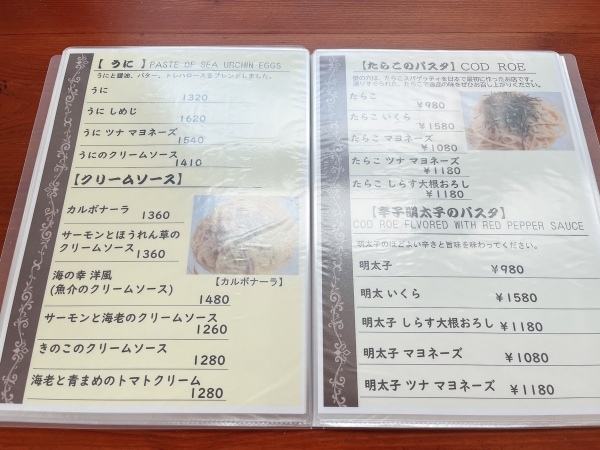 【 うに 】 PASTE OF SEA URCHIN EGGS
うにと醤油、バター、トレハロースをブレンドしました。
うに 1320
うに しめじ 1620
うに ツナ マヨネーズ 1540
うにのクリームソース 1410
【クリームソース】
カルボナーラ 1360
サーモンとほうれん草の
クリームソース 1360
海の幸 洋風
(魚介のクリームソース) 1480
【カルボナーラ】
サーモンと海老のクリームソース 1260
きのこのクリームソース 1280
海老と青まめのトマトクリーム 1280
【たらこのパスタ】 COD ROE
壁の穴は、たらこスパゲッティを日本で最初に作ったお店です。
たらこ ¥980
たらこ いくら ¥1580
たらこ マヨネーズ ¥1080
たらこ ツナ マヨネーズ ¥1180
たらこ しらす大根おろし ¥1180
【辛子明太子のパスタ】
COD ROE FLVORED WITH RED PEPPER SAUCE
明太子のほどよい辛さと旨味を味わってください。
明太子 ¥980
明太 いくら ¥1580
明太子 しらす大根おろし ¥1180
明太子 マヨネーズ ¥1080
明太子 ツナ マヨネーズ ¥1180